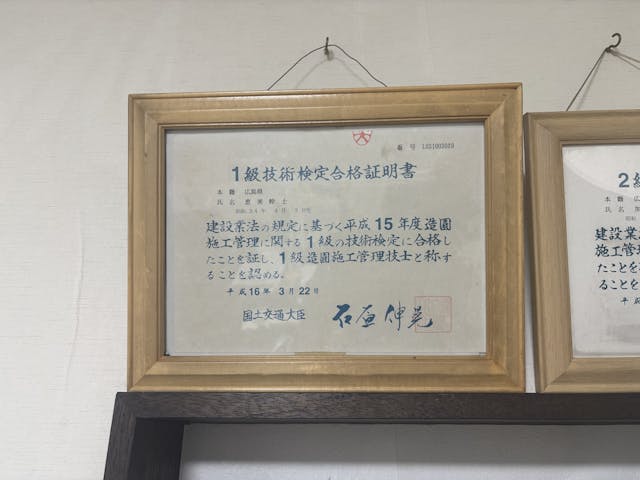 番号
1級技術検定合格証明書
本籍 広島県
氏名
建設業法の規定に基づく平成15年度造園
施工管理に関する1級の技術検定に合格し
たことを証し、1級造園施工管理技士と称す
ることを認める。
平成16年 3月22日
国土交通大臣 石原伸晃
2級
本籍 広
氏名
建設業
施工管理
たことを
ることを
平成